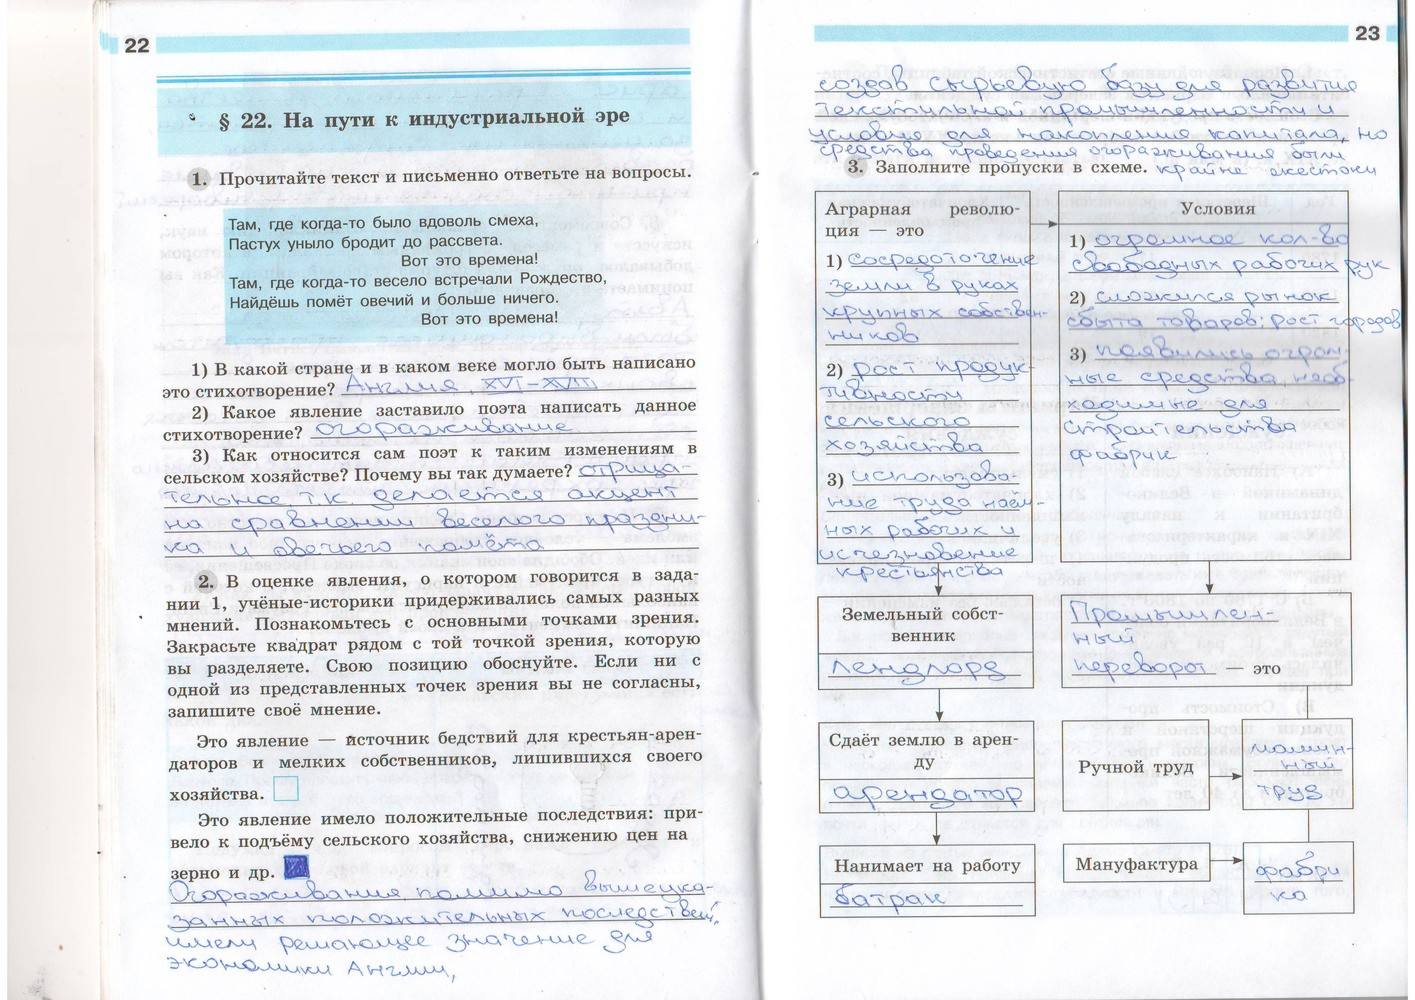 22
§ 22. На пути к индустриальной эре
1. Прочитайте текст и письменно ответьте на вопросы.
Там, где когда-то было вдоволь смеха,
Пастух уныло бродит до рассвета.
Вот это времена!
Там, где когда-то весело встречали Рождество,
Найдёшь помёт овечий и больше ничего.
Вот это времена!
1) В какой стране и в каком веке могло быть написано
это стихотворение? Англия, XVI–XVII
2) Какое явление заставило поэта написать данное
стихотворение? огораживание
3) Как относится сам поэт к таким изменениям в
сельском хозяйстве? Почему вы так думаете? отрица-
тельное, т.к. делается акцент
на сравнении веселого праздни-
ка и овечьего помёта
2. В оценке явления, о котором говорится в зада-
нии 1, учёные-историки придерживались самых разных
мнений. Познакомьтесь с основными точками зрения.
Закрасьте квадрат рядом с той точкой зрения, которую
вы разделяете. Свою позицию обоснуйте. Если ни с
одной из представленных точек зрения вы не согласны,
запишите своё мнение.
Это явление — источник бедствий для крестьян-арен-
даторов и мелких собственников, лишившихся своего
хозяйства.
Это явление имело положительные последствия: при-
вело к подъёму сельского хозяйства, снижению цен на
зерно и др.
Огораживания, помимо вышеука-
занных положительных последствий,
имели решающее значение для
экономики Англии,
23
создав сырьевую базу для развития
текстильной промышленности и
условие для накопления капитала, но
средства проведения огораживания были
3. Заполните пропуски в схеме. крайне жестоки
Аграрная револю-
ция — это
1) сосредоточение
земли в руках
крупных собствен-
ников
2) рост продук-
тивности
сельского
хозяйства
3) использова-
ние труда наём-
ных рабочих
исчезновение
крестьянства
Условия
1) огромное кол-во
свободных рабочих рук
2) сложился рынок
сбыта товаров; рост городов
3) появились огром-
ные средства необ-
ходимые для
строительства
фабрик
Земельный собст-
венник
лендлорд
Сдаёт землю в арен-
ду
арендатор
Нанимает на работу
батрак
Промышлен-
ный
переворот — это
Ручной труд
машин-
ный
труд
Мануфактура
фабри
ка